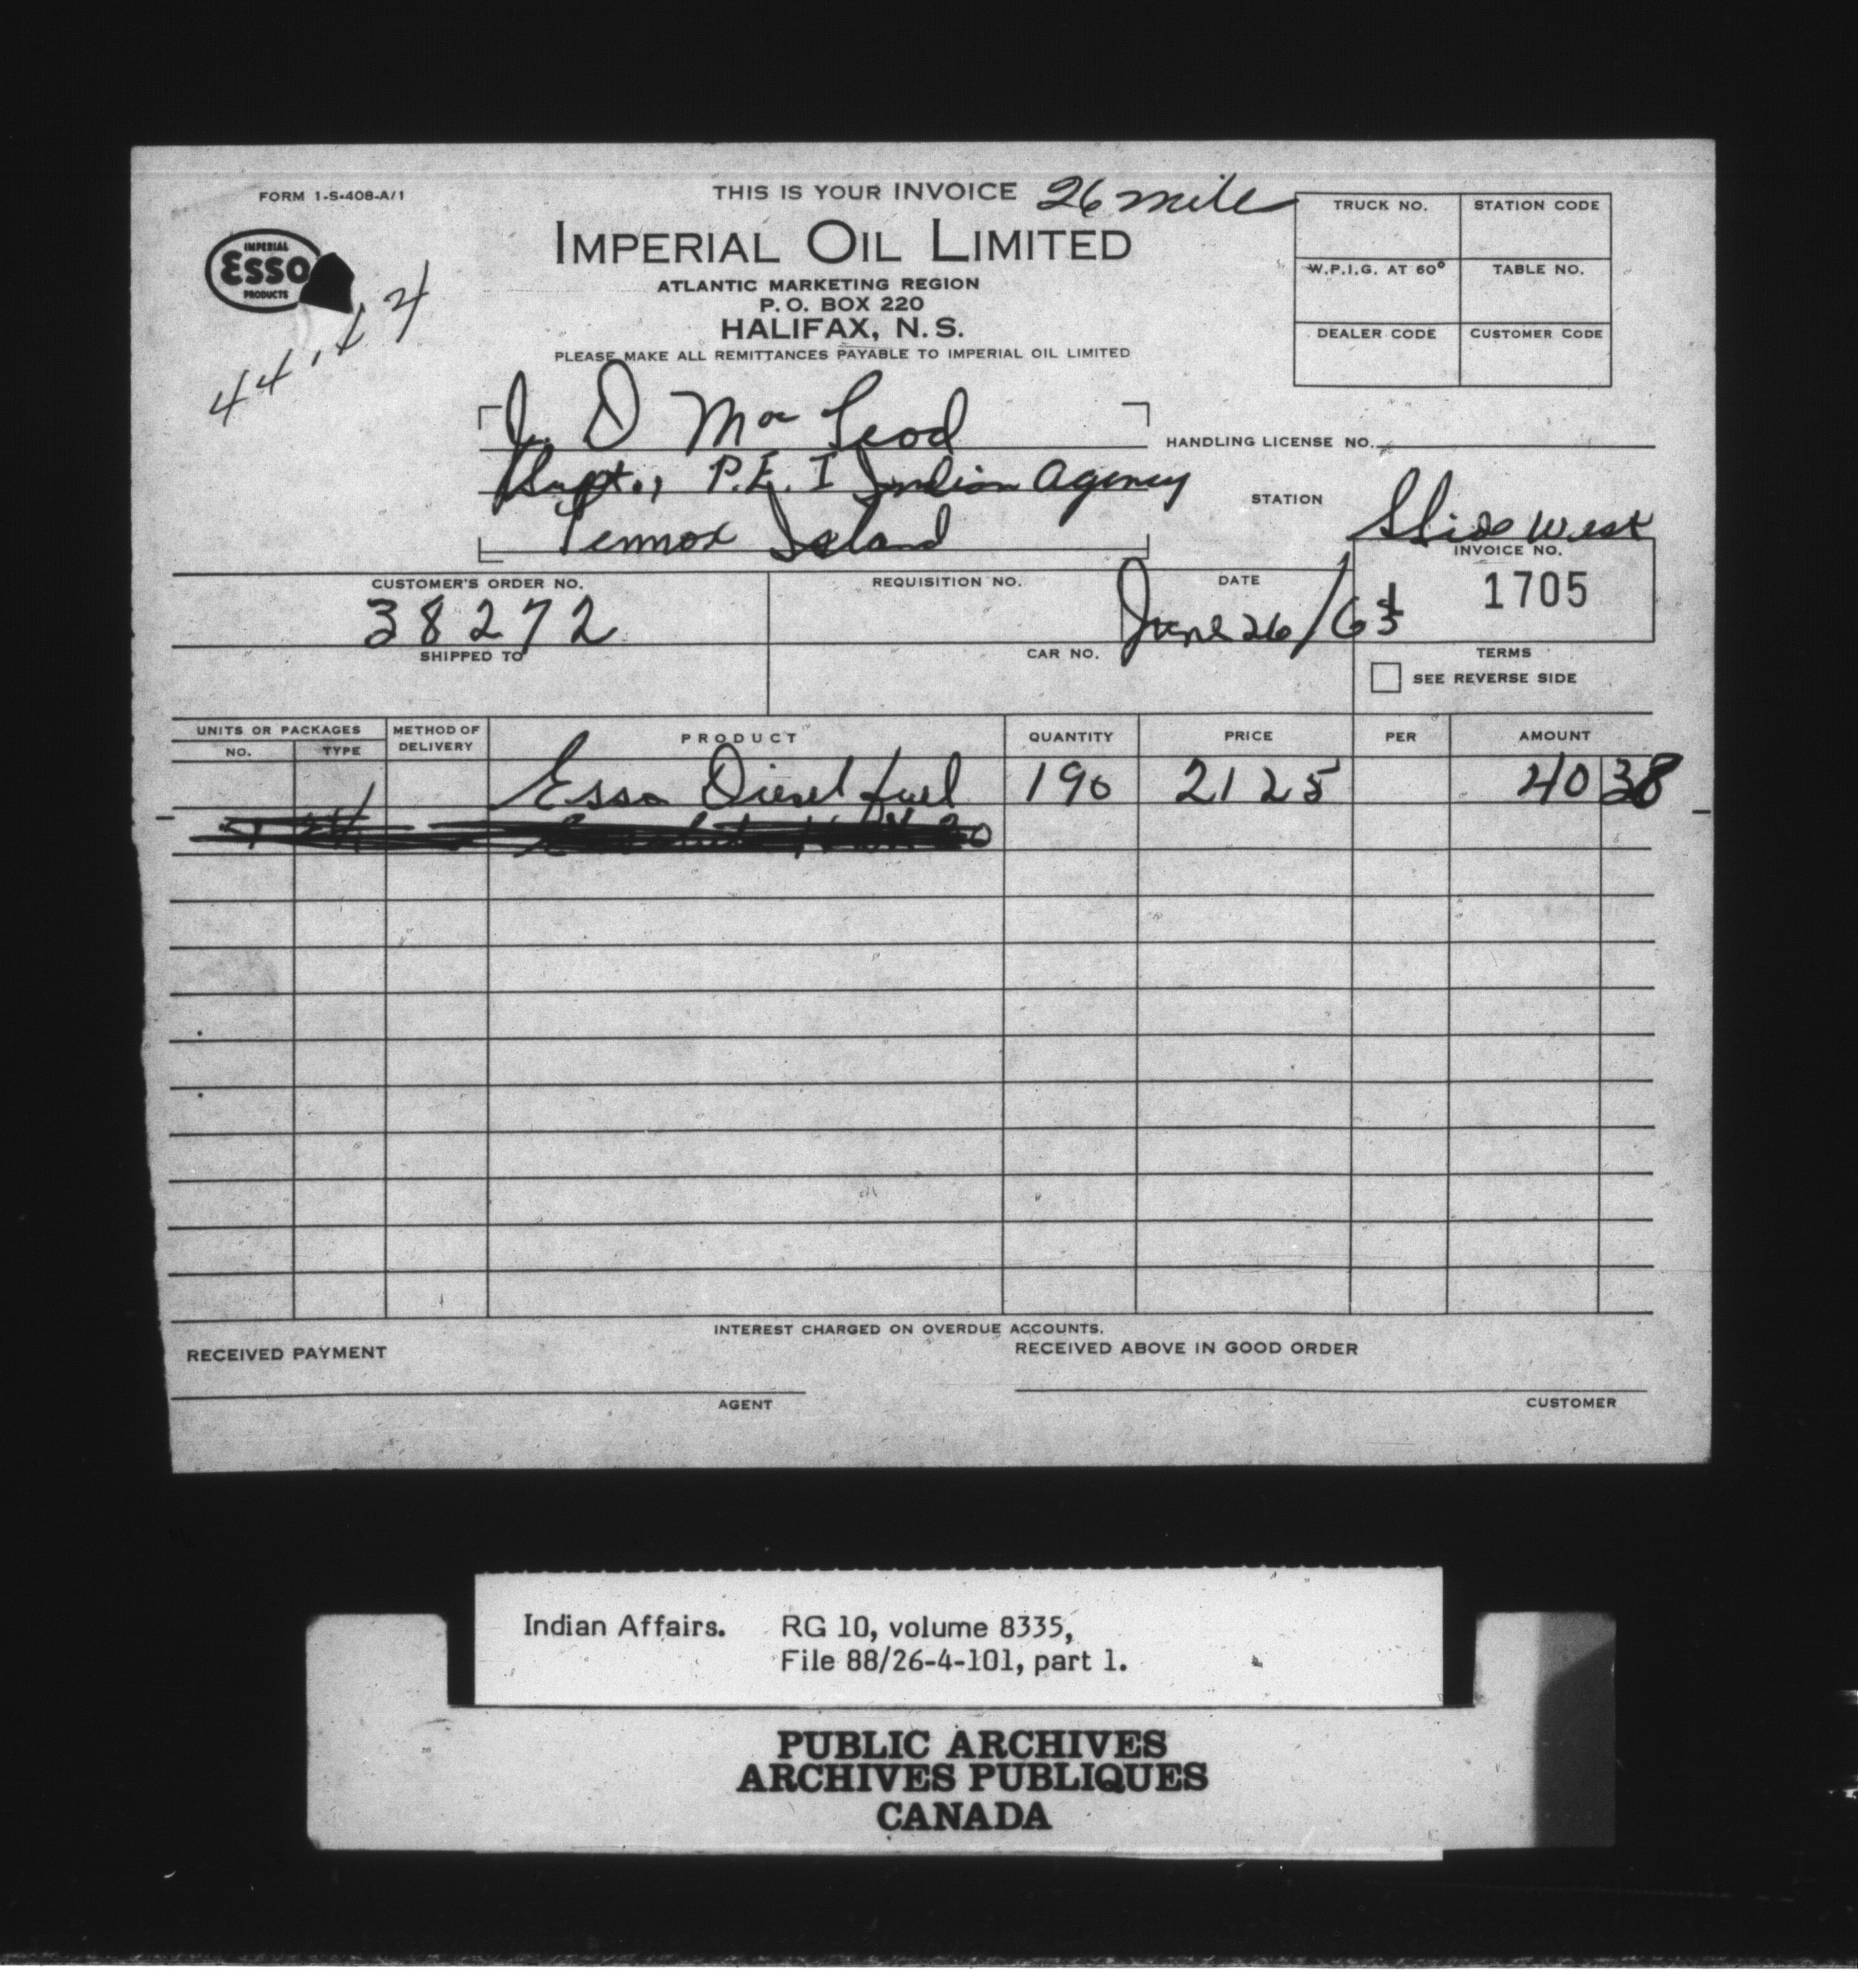 FORM 1-S-408-A/1
THIS IS YOUR INVOICE 26 mile
IMPERIAL
ESSO
PRODUCTS
IMPERIAL OIL LIMITED
ATLANTIC MARKETING REGION
P. O. BOX 220
HALIFAX, N. S.
PLEASE MAKE ALL REMITTANCES PAYABLE TO IMPERIAL OIL LIMITED
TRUCK NO. STATION CODE
W.P.I.G. AT 60° TABLE NO.
DEALER CODE CUSTOMER CODE
D MacLeod
HANDLING LICENSE NO.
Supt., P.E.I Indian Agency
STATION
Lennox Island
West
INVOICE NO.
1705
CUSTOMER'S ORDER NO. REQUISITION NO. DATE
38272 June 26/63
SHIPPED TO CAR NO. TERMS
SEE REVERSE SIDE
UNITS OR PACKAGES METHOD OF DELIVERY PRODUCT QUANTITY PRICE PER AMOUNT
NO. TYPE
Esso Diesel fuel 190 2125 40 38
INTEREST CHARGED ON OVERDUE ACCOUNTS.
RECEIVED PAYMENT RECEIVED ABOVE IN GOOD ORDER
AGENT CUSTOMER
Indian Affairs. RG 10, volume 8335,
File 88/26-4-101, part 1.
PUBLIC ARCHIVES
ARCHIVES PUBLIQUES
CANADA